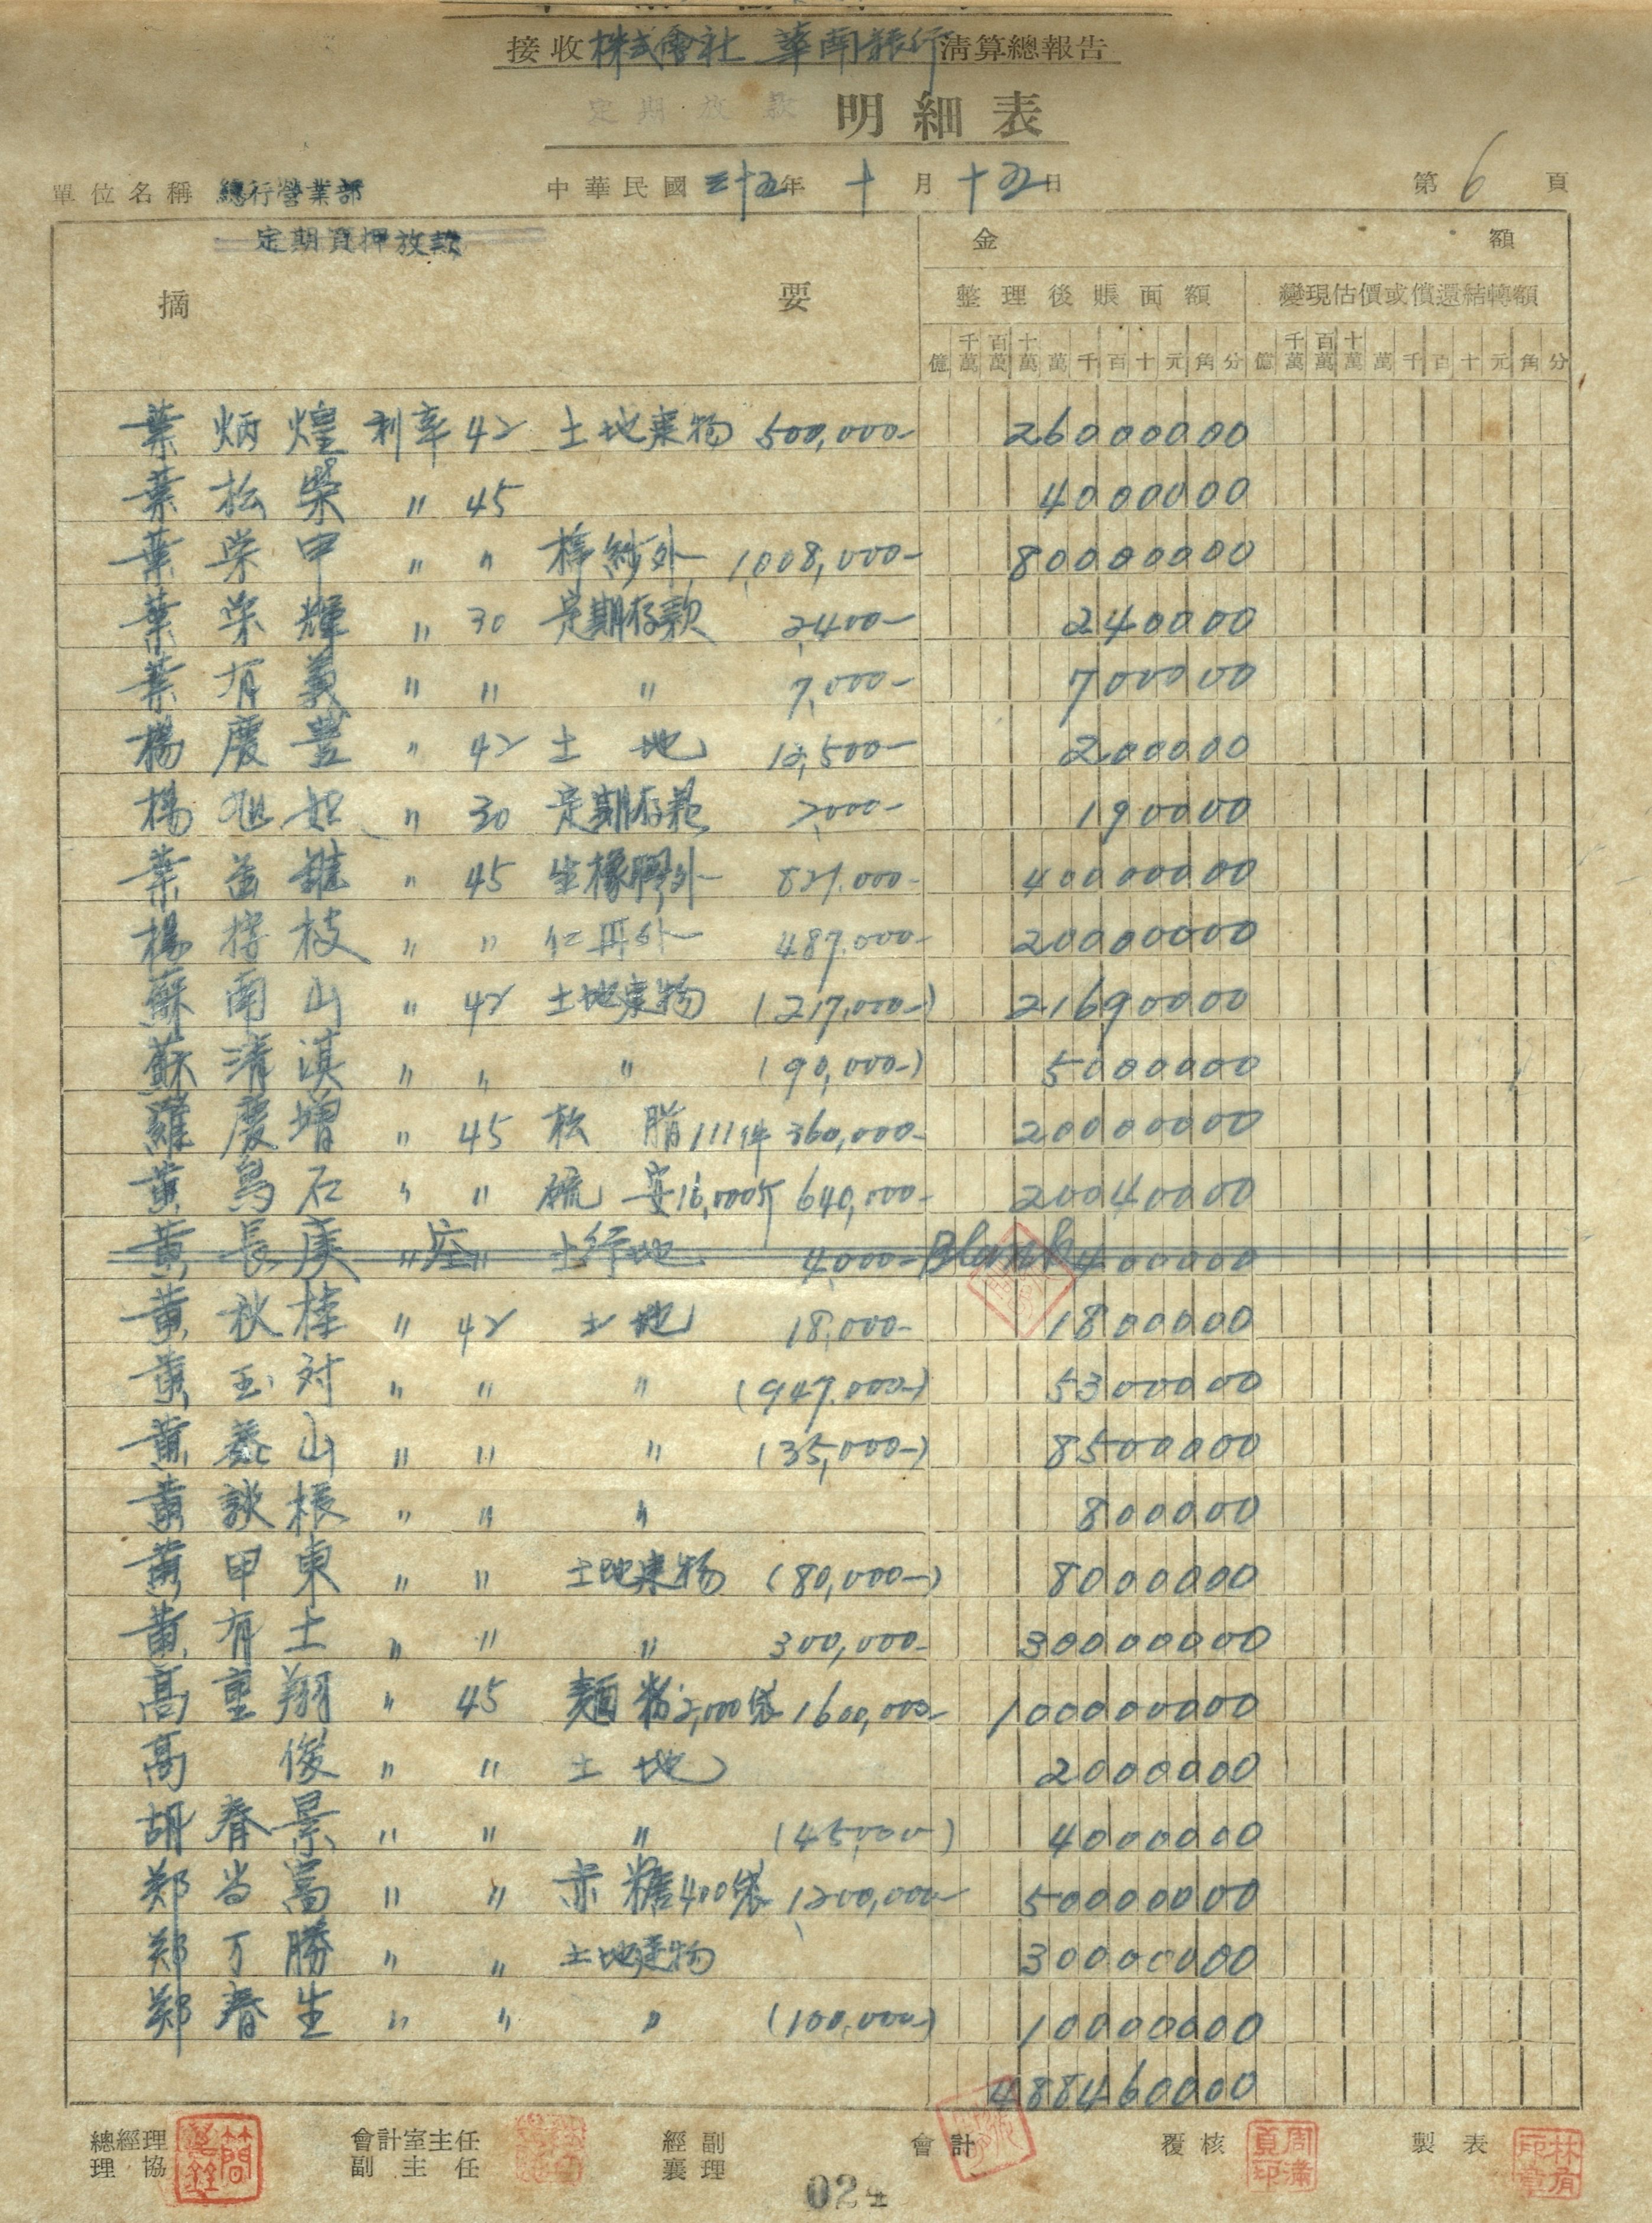 接收株式會社 華南銀行清算總報告
定期放款 明細表
單位名稱 總行營業部 中華民國三十五年十月十五日 第6頁
定期質押放款
摘要 金額
整理後賬面額 變現估價或償還結轉額
億 千萬 百萬 十萬 萬 千 百 十 元 角 分 億 千萬 百萬 十萬 萬 千 百 十 元 角 分
葉炳煌 利率 42 土地建物 500,000- 26000000
葉松榮 〃 45 4000000
葉榮申 〃 〃 樟紗外 1,008,000- 80000000
葉榮輝 〃 30 定期存款 2,400- 240000
葉有義 〃 〃 〃 7,000- 700000
楊慶豊 〃 42 土地 12,500- 200000
楊旭如 〃 30 定期存款 2,000- 190000
葉 〃 45 生橡膠外 821,000- 40000000
楊 枝 〃 〃 外 487,000- 20000000
蘇南山 〃 42 土地建物 (217,000-) 21690000
蘇清淇 〃 〃 〃 (90,000-) 5000000
羅慶增 〃 45 松脂111件 360,000- 20000000
黃鳥石 〃 〃 硫安16,000斤 640,000- 20040000
黃長庚 〃 〃 土地 4,000- Blank 400000
黃秋桂 〃 42 土地 18,000- 1800000
黃玉对 〃 〃 〃 (947,000-) 5300000
黃 山 〃 〃 〃 (35,000-) 8500000
黃談根 〃 〃 〃 800000
黃甲東 〃 〃 土地建物 (80,000-) 8000000
黃有土 〃 〃 〃 300,000- 30000000
高重翔 〃 45 麵粉2,000袋 1600,000- 100000000
高俊 〃 〃 土地 2000000
胡春景 〃 〃 〃 (45,000) 4000000
郑当富 〃 〃 赤糖400袋 1,200,000- 50000000
郑丁勝 〃 〃 土地建物 30000000
郑春生 〃 〃 〃 (100,000-) 10000000
488460000
總經理 協理 會計室主任 副主任 經副襄理 會計 覆核 製表
024